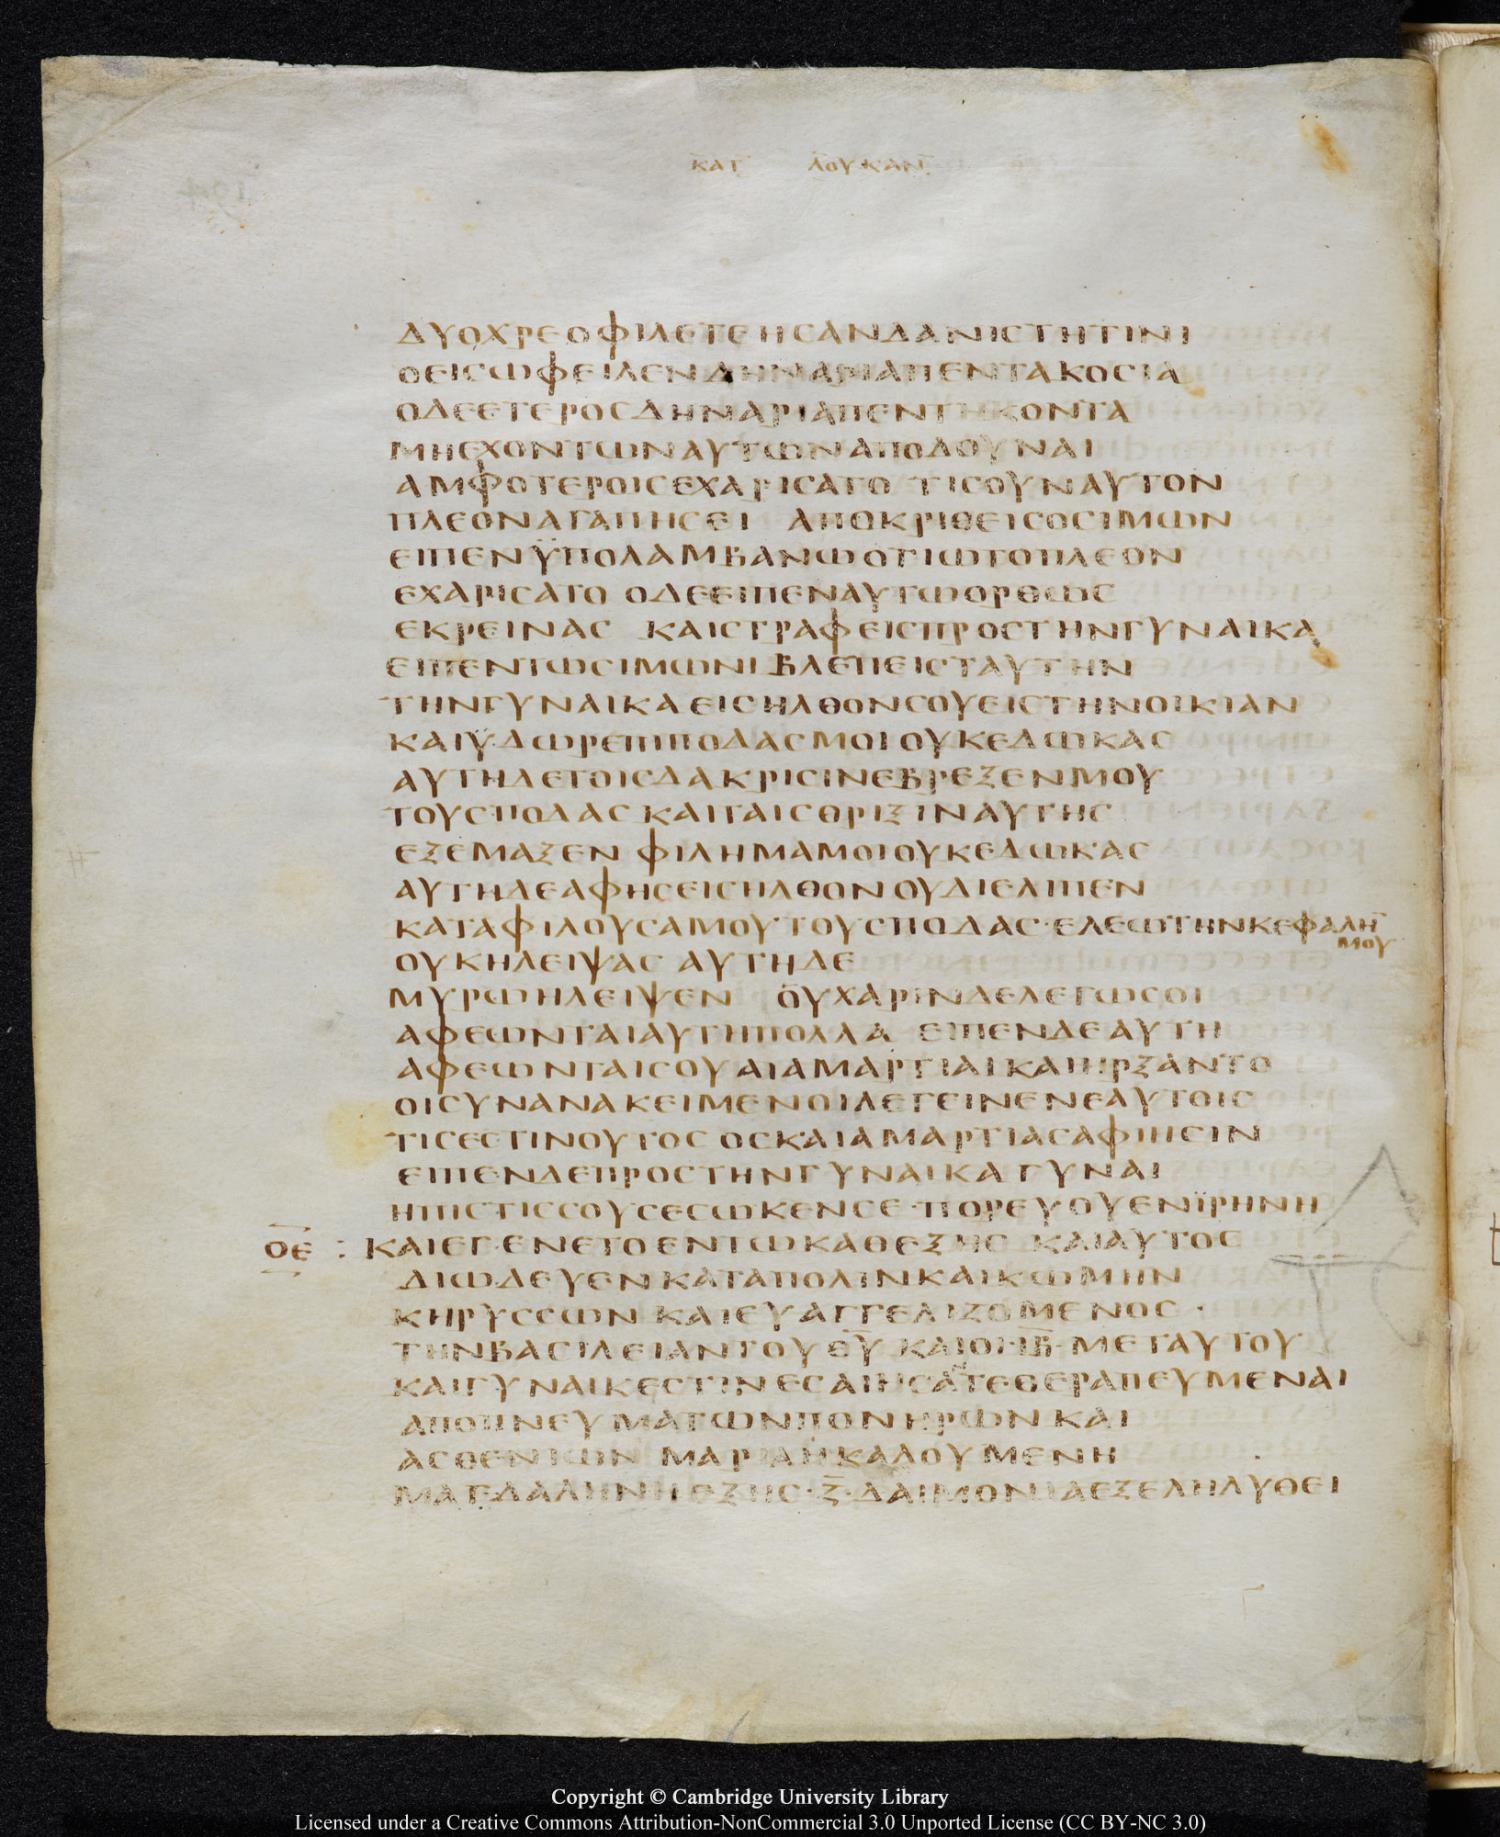 ΚΑΤ ΛΟΥΚΑΝ
ΔΥΟΧΡΕΟΦΙΛΕΤΕΗСΑΝΔΑΝΙСΤΗΤΙΝΙ
ΟΕΙСΩΦΕΙΛΕΝΔΗΝΑΡΙΑΠΕΝΤΑΚΟСΙΑ
ΟΔΕΕΤΕΡΟСΔΗΝΑΡΙΑΠΕΝΤΗΚΟΝΤΑ
ΜΗΕΧΟΝΤΩΝΑΥΤΩΝΑΠΟΔΟΥΝΑΙ
ΑΜΦΟΤΕΡΟΙСΕΧΑΡΙСΑΤΟ ΤΙСΟΥΝΑΥΤΟΝ
ΠΛΕΟΝΑΓΑΠΗСΕΙ ΑΠΟΚΡΙΘΕΙСΟСΙΜΩΝ
ΕΙΠΕΝΫΠΟΛΑΜΒΑΝΩΟΤΙΩΤΟΠΛΕΟΝ
ΕΧΑΡΙСΑΤΟ ΟΔΕΕΙΠΕΝΑΥΤΩΟΡΘΩС
ΕΚΡΕΙΝΑС ΚΑΙСΤΡΑΦΕΙСΠΡΟСΤΗΝΓΥΝΑΙΚΑ
ΕΙΠΕΝΤΩСΙΜΩΝΙ ΒΛΕΠΕΙСΤΑΥΤΗΝ
ΤΗΝΓΥΝΑΙΚΑΕΙСΗΛΘΟΝСΟΥΕΙСΤΗΝΟΙΚΙΑΝ
ΚΑΙΫΔΩΡΕΠΙΠΟΔΑСΜΟΙΟΥΚΕΔΩΚΑС
ΑΥΤΗΔΕΤΟΙСΔΑΚΡΙСΙΝΕΒΡΕΞΕΝΜΟΥ
ΤΟΥСΠΟΔΑС ΚΑΙΤΑΙСΘΡΙΞΙΝΑΥΤΗС
ΕΞΕΜΑΞΕΝ ΦΙΛΗΜΑΜΟΙΟΥΚΕΔΩΚΑС
ΑΥΤΗΔΕΑΦΗСΕΙСΗΛΘΟΝΟΥΔΙΕΛΙΠΕΝ
ΚΑΤΑΦΙΛΟΥСΑΜΟΥΤΟΥСΠΟΔΑС·ΕΛΕΩΤΗΝΚΕΦΑΛΗ̄
ΜΟΥ
ΟΥΚΗΛΕΙΨΑС ΑΥΤΗΔΕ
ΜΥΡΩΗΛΕΙΨΕΝ ΟΥΧΑΡΙΝΔΕΛΕΓΩСΟΙ
ΑΦΕΩΝΤΑΙΑΥΤΗΠΟΛΛΑ ΕΙΠΕΝΔΕΑΥΤΗ
ΑΦΕΩΝΤΑΙСΟΥΑΙΑΜΑΡΤΙΑΙΚΑΙΗΡΞΑΝΤΟ
ΟΙСΥΝΑΝΑΚΕΙΜΕΝΟΙΛΕΓΕΙΝΕΝΕΑΥΤΟΙС
ΤΙСΕСΤΙΝΟΥΤΟС ΟСΚΑΙΑΜΑΡΤΙΑСΑΦΙΗСΙΝ
ΕΙΠΕΝΔΕΠΡΟСΤΗΝΓΥΝΑΙΚΑ ΓΥΝΑΙ
ΗΠΙСΤΙССΟΥСΕСΩΚΕΝСΕ·ΠΟΡΕΥΟΥΕΝΪΡΗΝΗ
ΟΕ : ΚΑΙΕΓΕΝΕΤΟΕΝΤΩΚΑΘΕΞΗС ΚΑΙΑΥΤΟС
ΔΙΩΔΕΥΕΝΚΑΤΑΠΟΛΙΝΚΑΙΚΩΜΗΝ
ΚΗΡΥССΩΝ ΚΑΙΕΥΑΓΓΕΛΙΖΟΜΕΝΟС ·
ΤΗΝΒΑСΙΛΕΙΑΝΤΟΥΘ̅Υ̅ ΚΑΙΟΙ·ΙΒ̅·ΜΕΤΑΥΤΟΥ
ΚΑΙΓΥΝΑΙΚΕСΤΙΝΕСΑΙΗСΑΝΤΕΘΕΡΑΠΕΥΜΕΝΑΙ
ΑΠΟΠΝΕΥΜΑΤΩΝΠΟΝΗΡΩΝΚΑΙ
ΑСΘΕΝΙΩΝ ΜΑΡΙΑΗΚΑΛΟΥΜΕΝΗ
ΜΑΓΔΑΛΗΝΗΕΞΗС·Ζ̅·ΔΑΙΜΟΝΙΑΕΞΕΛΗΛΥΘΕΙ
Copyright © Cambridge University Library
Licensed under a Creative Commons Attribution-NonCommercial 3.0 Unported License (CC BY-NC 3.0)